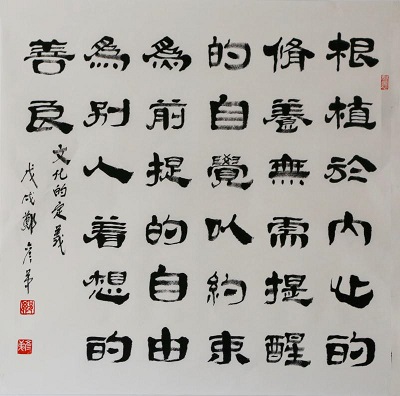 根植於内心的
修養無需提醒
的自覺以約束
爲前提的自由
爲别人着想的
善良
文化的定義
戊戌鄭